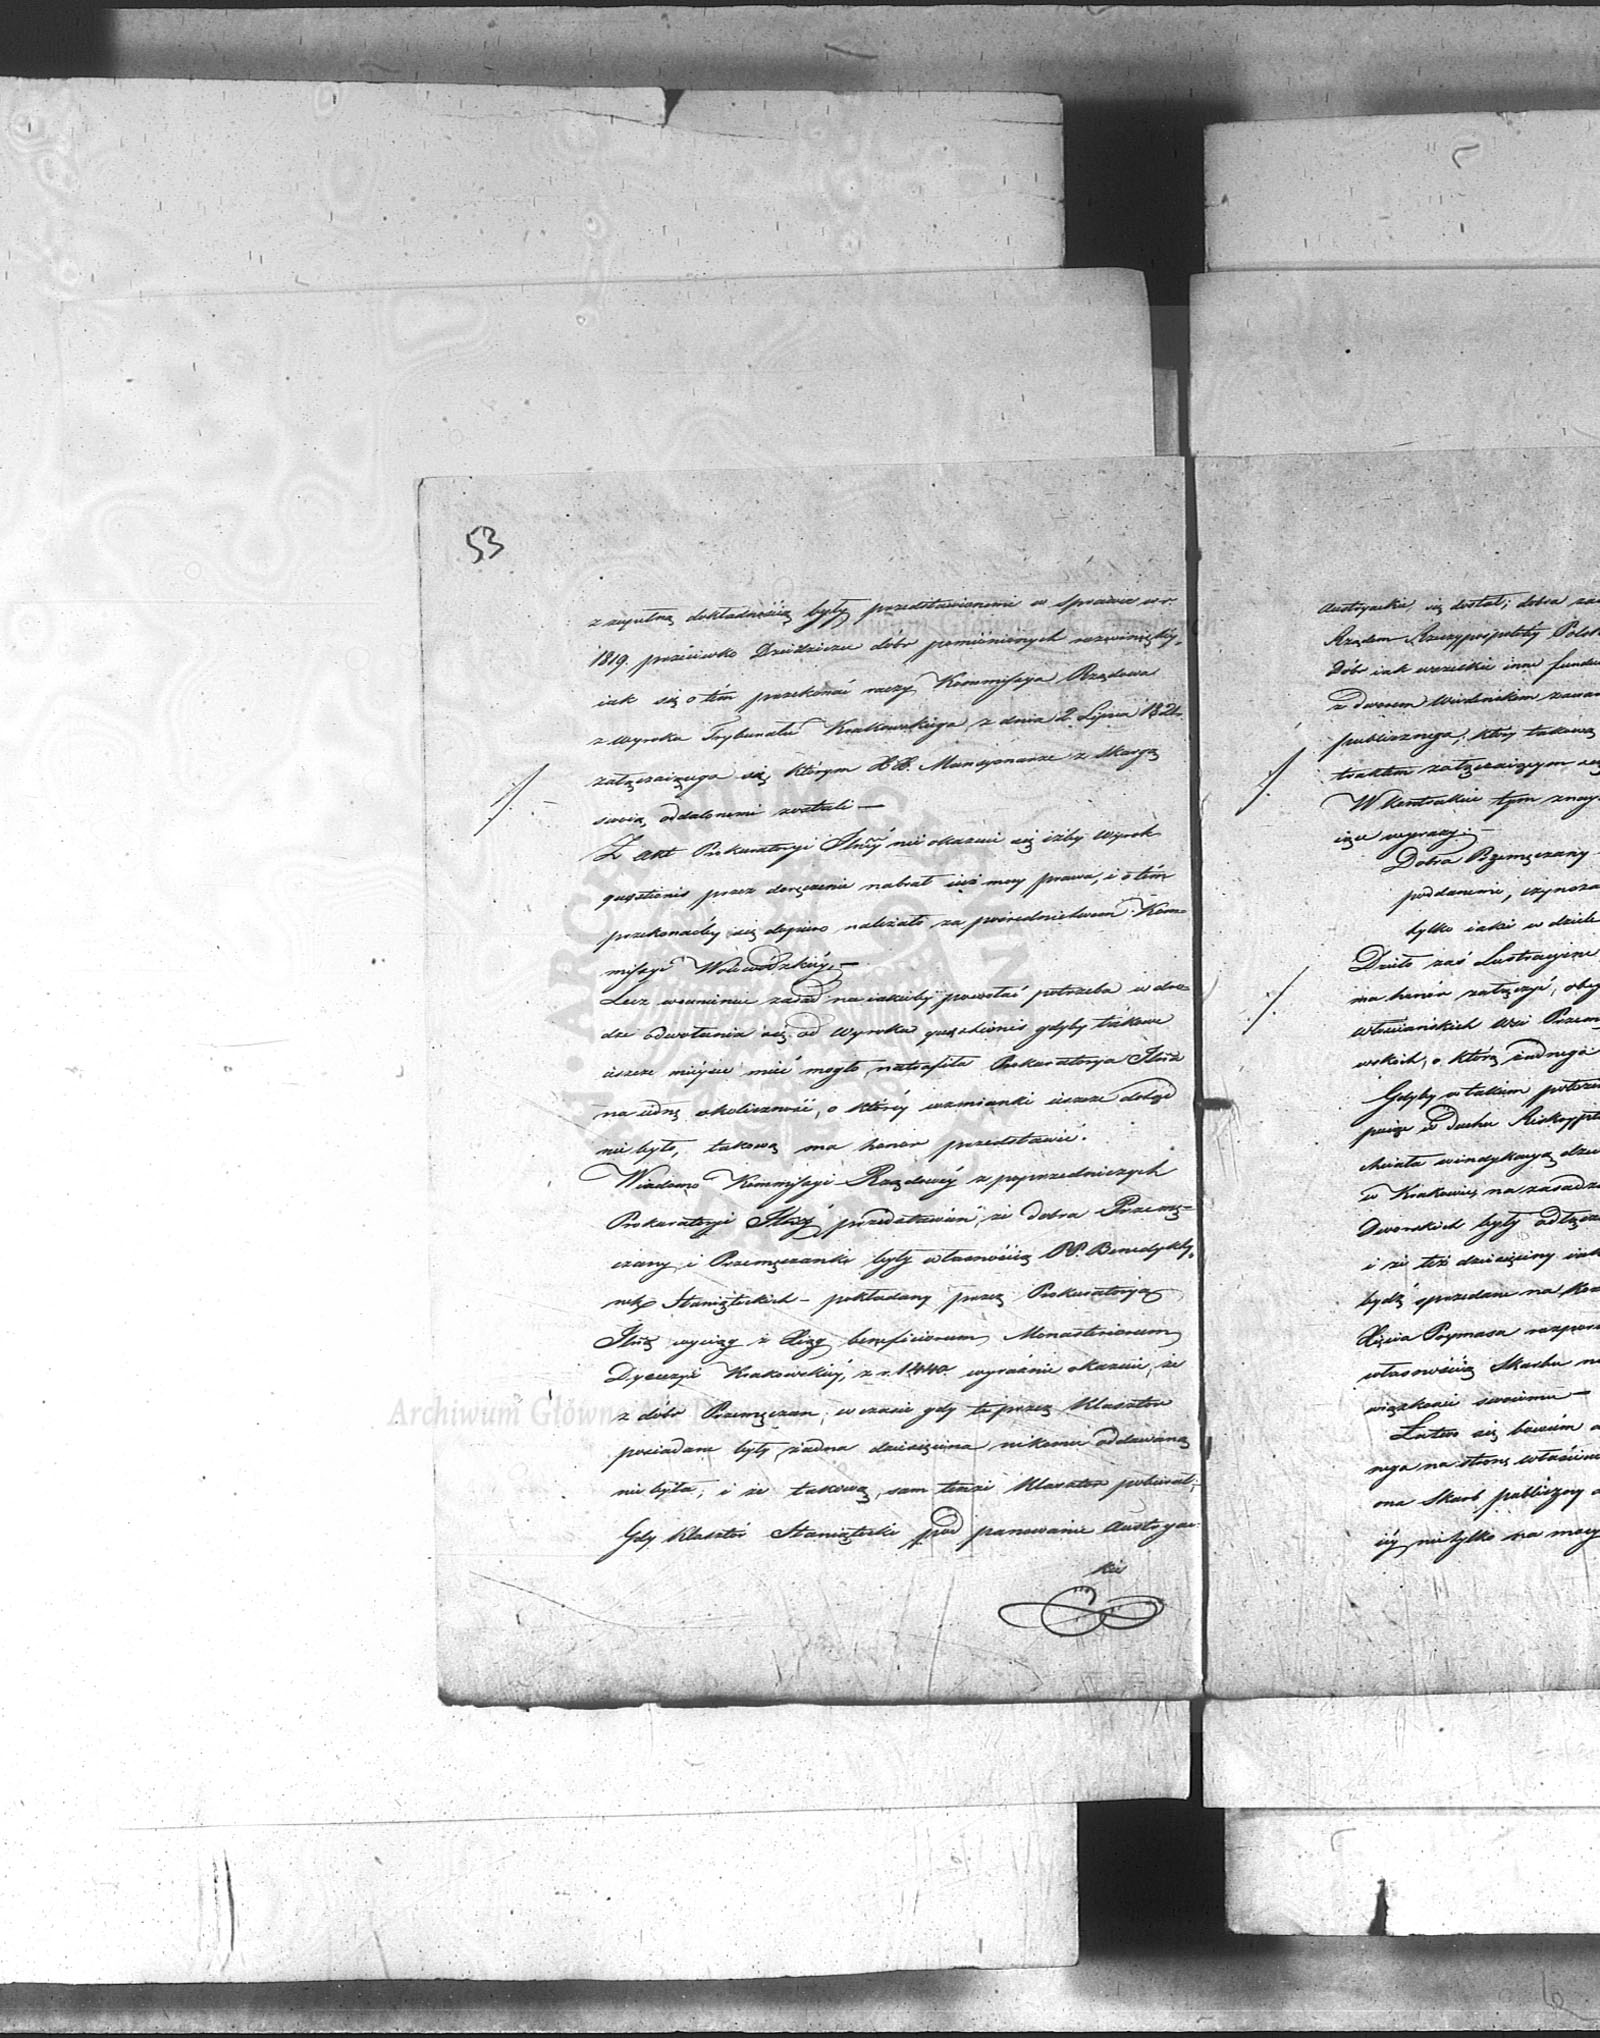 53
z zupełną dokładnością były przedstawionemi w sprawie w r.
1819. przeciwko Dziedzicom dóbr pomienionych rozwiniętéy,
iak się o tém przekonać raczy Kommissya Rządowa
z wyroku Trybunału Krakowskiego z dnia 2. Lipca 1821.
załączaiącego się, którym XX. Mansyonarze z skargą
swoią oddalonemi zostali —
Z akt Prokuratoryi Jlnéy nie okazuie się iżby wyrok
quęstionis przez doręczenie nabrał iuż mocy prawa, i o tém
przekonaćby się dopiero należało za pośrednictwem Kom=
missyi Woiewódzkiéy. —
Lecz w summie zasad na iakieby powołać potrzeba w dro=
dze odwołania się od wyroku quęstionis gdyby takowe
ieszcze mieysce mieć mogło, natrafiła Prokuratorya Jlna
na iedną okoliczność, o któréy wzmianki ieszcze dotąd
nie było, takową ma honor przedstawić.
Wiadomo Kommissyi Rządowéy z poprzedniczych
Prokuratoryi Jlnéy przedstawień, że dobra Przemę=
czany i Przemęczanki były własnością PP. Benedykty,
nek Staniąteckich — pokładany przez Prokuratoryą
Jlną wyciąg z Xiąg beneficiorum Monasteriorum
Dyecezyi Krakowskiéy, z r. 1440. wyraźnie okazuie, że
z dóbr Przemęczan, w czasie gdy te przez Klasztor
posiadane były, żadna dziesięcina nikomu oddawaną
nie była, i że takową, sam tenże Klasztor pobierał,
Gdy Klasztor Staniątecki pod panowanie Austryac=
kie
Austryackie się dostał, dobra
Rządem Rzeczypospolitéy Polsk
dóbr iak wszelkie inne fundu
z dworem Wiedeńskim zawar
publicznego, który takową
traktem załączaiącym się
W kontrakcie tym znay
iące wyrazy: —
Dobra Przemęczany
poddanemi, czynsza
tylko iakie w dziele
Dzieło zaś Lustracyine,
ma honor załączyć, obey
włościańskich wsi Przem
wskich, o którą żadnego
Gdyby w takim położe
puiąc w duchu Reskrypt
chciała windykacyą dzie
w Krakowie, na zasadz
Dworskich były odłącz
i że też dziesięciny iak
bydź sprzedane na Ko
Xięcia Prymasa rozpor
własnością Skarbu
wiązkowi swoiemu —
Łatwo się bowiem
nego na stronę właścic
ona Skarb publiczny
iéy nie tylko na mocy
Archiwum Główne Akt Dawnych